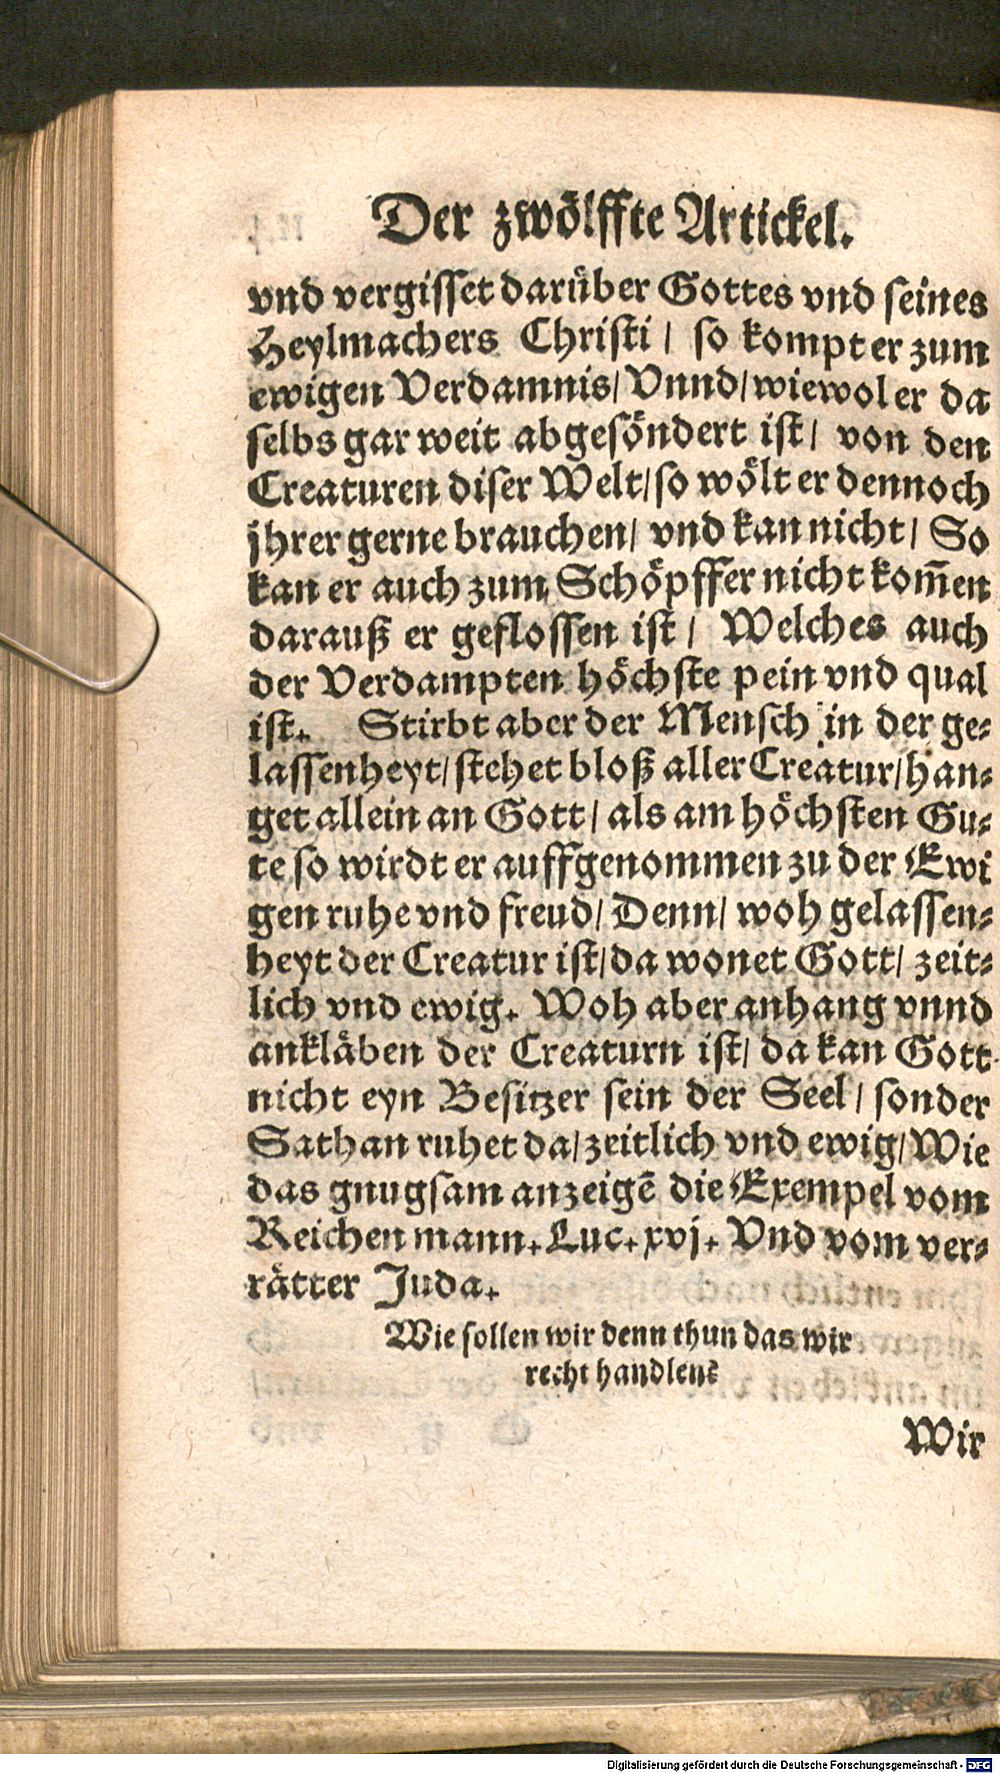 Der zwölffte Artickel.
vnd vergisset darüber Gottes vnd seines
Heylmachers Christi / so kompt er zum
ewigen Verdamnis / Vnnd / wiewol er da
selbs gar weit abgesöndert ist / von den
Creaturen diser Welt / so wölt er dennoch
jhrer gerne brauchen / vnd kan nicht / So
kan er auch zum Schöpffer nicht kom̃en
darauß er geflossen ist / Welches auch
der Verdampten höchste pein vnd qual
ist. Stirbt aber der Mensch in der ge⸗
lassenheyt / stehet bloß aller Creatur / han⸗
get allein an Gott / als am höchsten Gu⸗
te so wirdt er auffgenommen zu der Ewi
gen ruhe vnd freud / Denn / woh gelassen⸗
heyt der Creatur ist / da wonet Gott / zeit⸗
lich vnd ewig. Woh aber anhang vnnd
ankläben der Creaturn ist / da kan Gott
nicht eyn Besitzer sein der Seel / sonder
Sathan ruhet da / zeitlich vnd ewig / Wie
das gnugsam anzeigẽ die Exempel vom
Reichen mann. Luc. xvj. Vnd vom ver⸗
rätter Juda.
Wie sollen wir denn thun das wir
recht handlen?
Wir
Digitalisierung gefördert durch die Deutsche Forschungsgemeinschaft - DFG